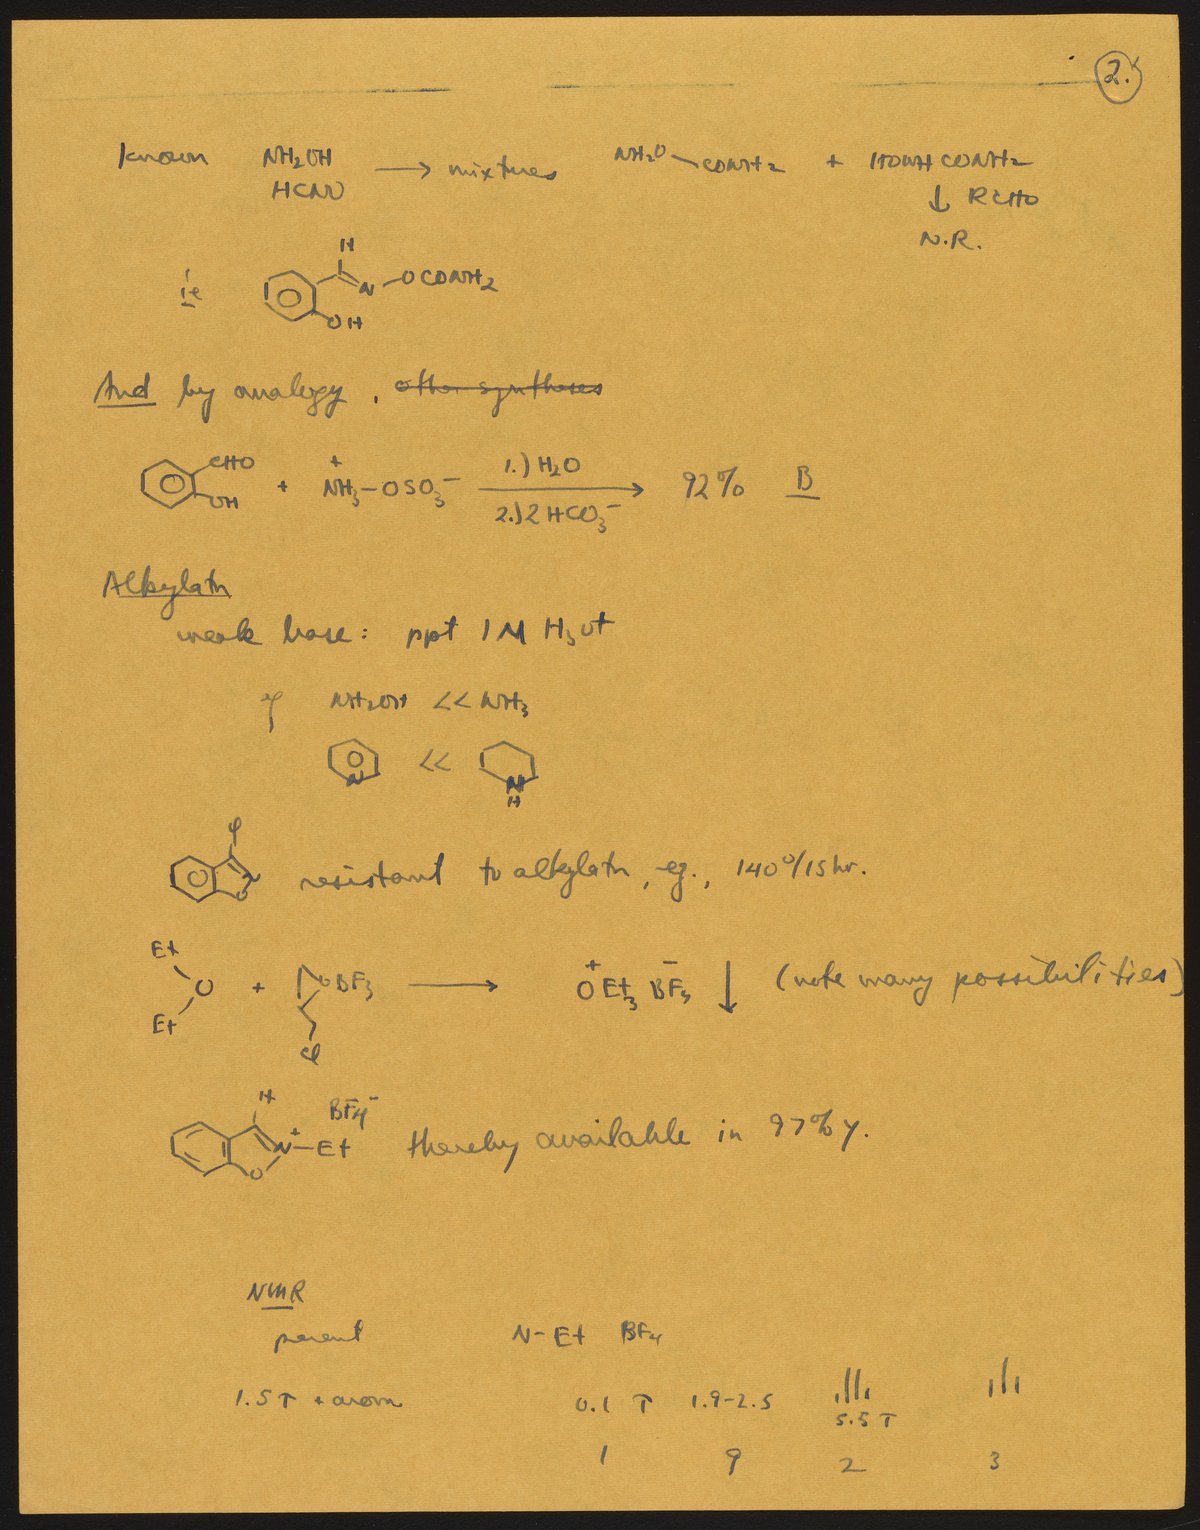 2.
known NH2OH HCNO → mixtures NH2O CONH2 + HONHCONH2
↓ RCHO
N.R.
ie H N-OCONH2 OH
And by analogy, other syntheses
CHO OH + NH3+-OSO3- 1.) H2O 2.) 2HCO3- → 92% B
Alkylatn
weak base: ppt 1M H3O+
NH2OH << NH3
N << N H
φ N O resistant to alkylatn, eg., 140°/15hr.
Et O Et + OBF3 Cl → +OEt3 BF4- ↓ (note many possibilities)
H N+-Et O BF4- thereby available in 97% y.
NMR
parent N-Et BF4
1.5 τ + arom 0.1 τ 1.9-2.5 5.5 τ
1 9 2 3